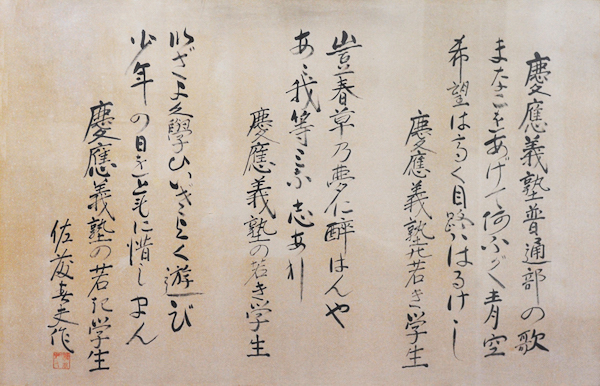 慶應義塾普通部の歌
まなこをあげて阿ふぐ青空
希望は高く目路はるけし
慶應義塾の若き学生
豈春草乃夢仁醉はんや
あゝ我等ミな志あり
慶應義塾の若き学生
いざよく學びいざよく遊び
少年の日をともに惜しまん
慶應義塾の若き学生
佐藤春夫作